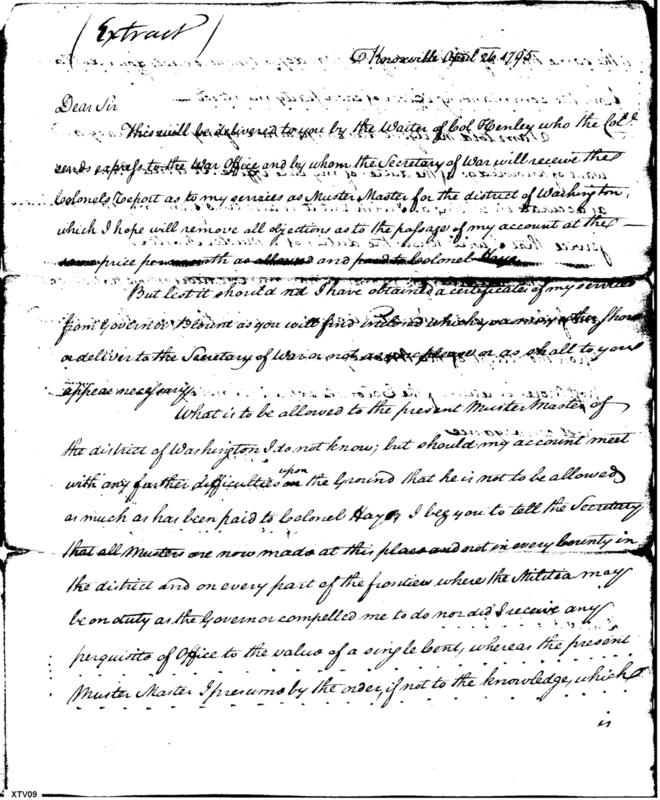 (Extract)
Knoxville April 26 1795
Dear Sir
This will be delivered to you by the Waiter of Col Henley who the Col.o
sends express to the War Office and by whom the Secretary of War will receive the
Colonels Report as to my services as Muster Master for the district of Washington,
which I hope will remove all objections as to the passage of my account at the
same price per month as allowed and paid to Colonel Hays.
But lest it should not I have obtained a certificate of my services
from Governor Blount as you will find inclosed which you may either Shew
or deliver to the Secretary of War or not as you please or as shall to you
appear necessary.
What is to be allowed to the present Muster Master of
the district of Washington I do not know; but should my account meet
with any further difficulties upon the Ground that he is not to be allowed
as much as has been paid to Colonel Hays, I beg you to tell the Secretary
that all Musters are now made at this place and not in every County in
the district and on every part of the frontier where the Militia may
be on duty as the Governor compelled me to do nor did I receive any
perquisite of Office to the value of a single Cent, whereas the present
Muster Master I presume by the order, if not to the knowledge, which
is
XTV09